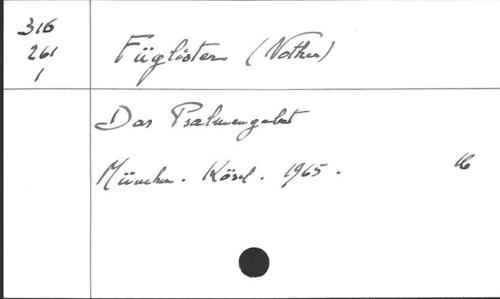 316
261
1
Füglister (Nother)
Das Psalmengebet
München. Kösel. 1965.
16